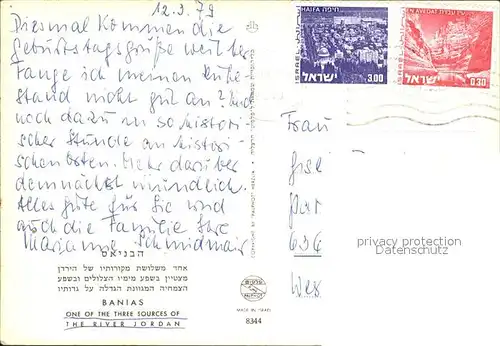 12.3.79
Diesmal kommen die
Geburtstagsgrüße weit her
Fange ich meinen Ruhe-
stand nicht gut an? Und
noch dazu in so histori-
scher Stunde an histori-
schen Orten. Mehr darüber
demnächst mündlich.
Alles gute für Sie und
auch die Familie Ihre
Marianne Schmidmair
הבניאס
אחד משלושת מקורותיו של הירדן
מצטיין בשפע מימיו הצלולים ובשפע
הצמחיה המגוונת הגדלה על גדותיו
BANIAS
ONE OF THE THREE SOURCES OF
THE RIVER JORDAN
MADE IN ISRAEL
8344
HAIFA חיפה
ISRAEL
ישראל
3.00
EN AVEDAT עין עבדת
ISRAEL
ישראל
0.30
Frau
636
Wes
privacy protection
Datenschutz